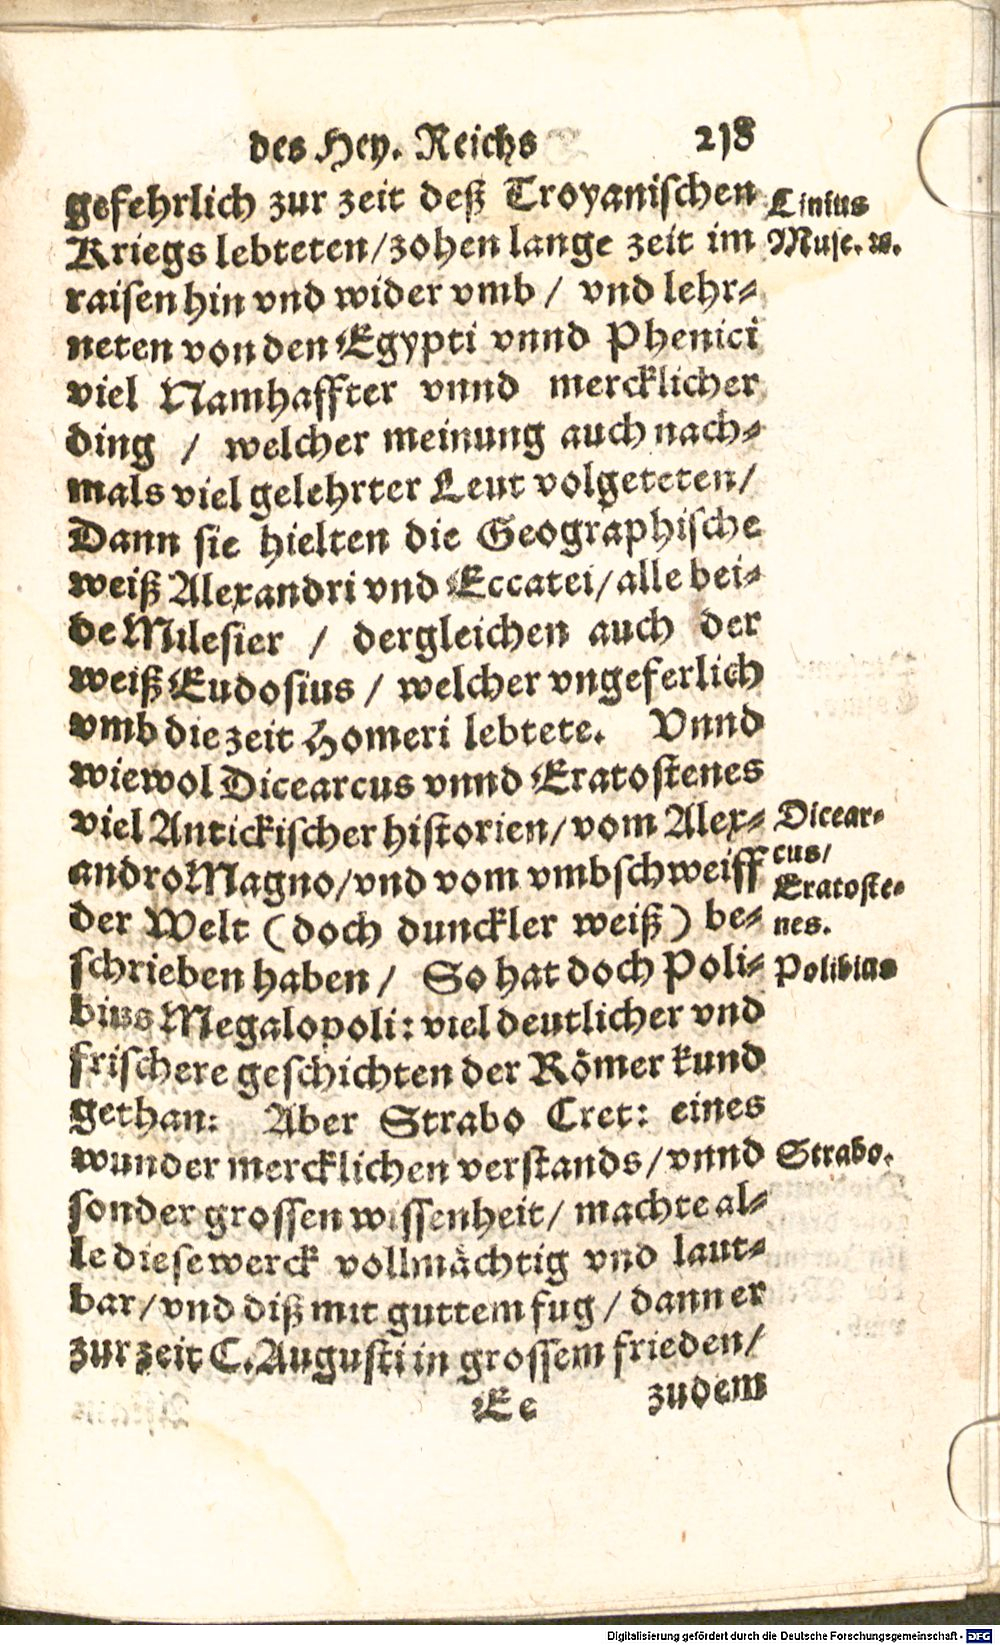 des Hey. Reichs 218
gefehrlich zur zeit deß Troyanischen
Kriegs lebteten/zohen lange zeit im
raisen hin vnd wider vmb / vnd lehr-
neten von den Egypti vnnd Phenici
viel Namhaffter vnnd mercklicher
ding / welcher meinung auch nach-
mals viel gelehrter Leut volgeteten/
Dann sie hielten die Geographische
weiß Alexandri vnd Eccatei/alle bei-
de Milesier / dergleichen auch der
weiß Eudosius / welcher vngeferlich
vmb die zeit Homeri lebtete. Vnnd
wiewol Dicearcus vnnd Eratostenes
viel Antickischer historien/vom Alex-
andro Magno/vnd vom vmbschweiff
der Welt (doch dunckler weiß) be-
schrieben haben / So hat doch Poli-
bius Megalopoli: viel deutlicher vnd
frischere geschichten der Römer kund
gethan: Aber Strabo Cret: eines
wunder mercklichen verstands/vnnd
sonder grossen wissenheit/ machte al-
le diese werck vollmächtig vnd laut-
bar/vnd diß mit guttem fug / dann er
zur zeit C.Augusti in grossem frieden/
Ee zudem
Linius
Muse. w.
Dicear-
cus/
Eratoste-
nes.
Polibius
Strabo.
Digitalisierung gefördert durch die Deutsche Forschungsgemeinschaft - DFG